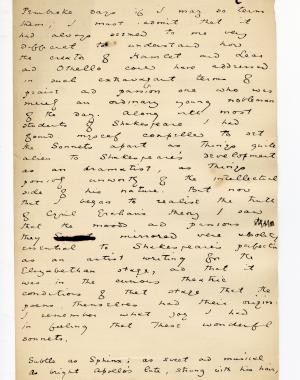 Pembroke days if I may so term
them, I must admit that it
had always seemed to me very
difficult to understand how
the creator of Hamlet and Lear
and Othello could have addressed
in such extravagant terms of
praise and passion one who was
merely an ordinary young nobleman
of the day. Along with most
students of Shakespeare I had
found myself compelled to set
the Sonnets apart as things quite
alien to Shakespeare's development
as an dramatist, as things
possibly unworthy of the intellectual
side of his nature. But now
that I began to realise the truth
of Cyril Graham's theory I saw
that the moods and passions
they mirrored were absolutely
essential to Shakespeare's perfection
as an artist writing for the
Elizabethan stage, and that it
was in the curious theatric
conditions of that stage that the
poems themselves had their origin.
I remember what joy I had
in feeling that these wonderful
sonnets,
Subtle as Sphinx; as sweet and musical
as bright Apollo's lute, strung with his hair,